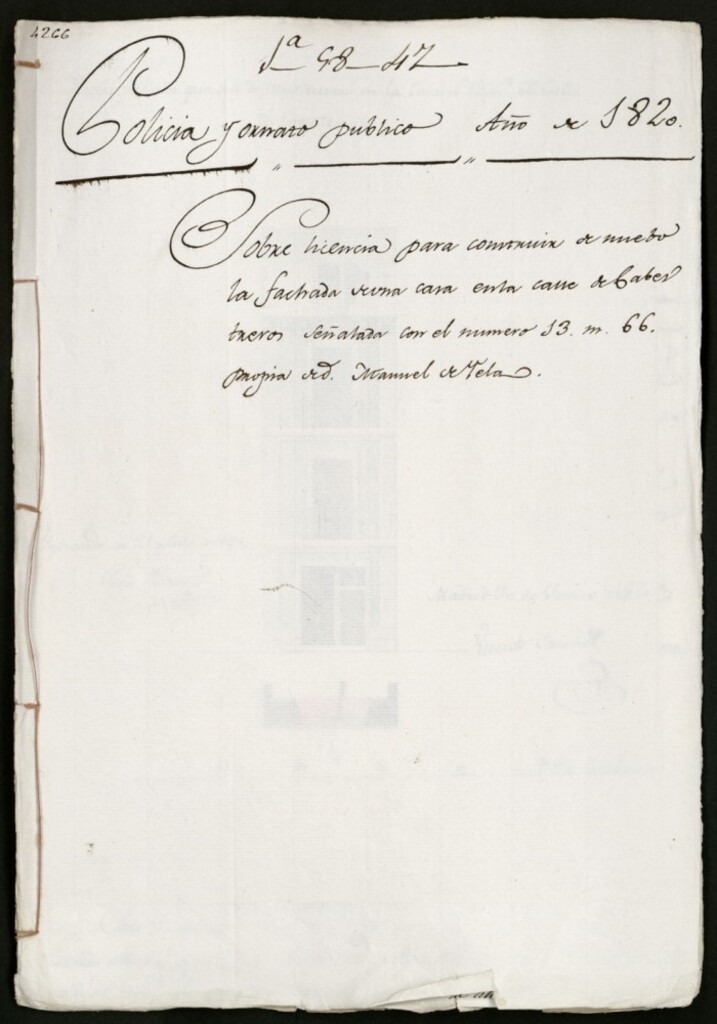 4266
1ª 58-47
Policia y ornato publico Año de 1820.
Sobre licencia para construir de nuebo
la fachada de una casa en la calle de Cabes
treros señalada con el numero 13. m. 66.
propia de d. Manuel de Tela.